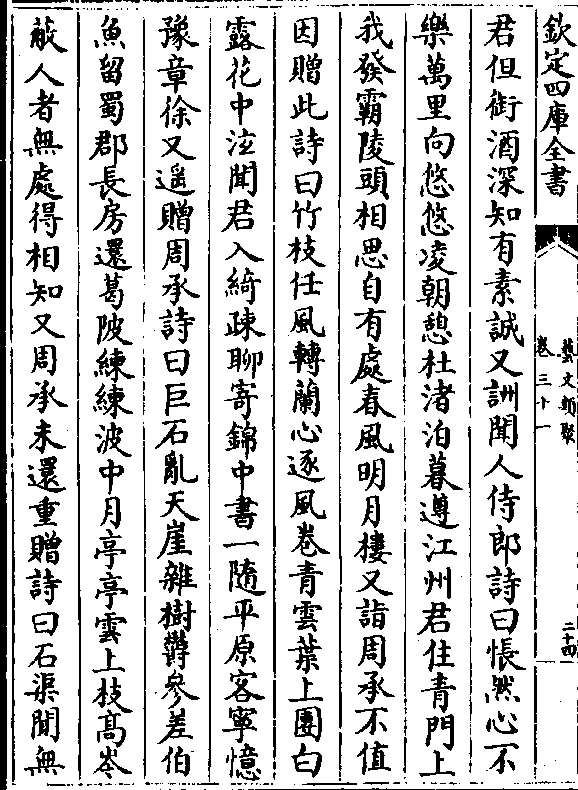 欽定四庫全書
藝文類聚
卷三十一
二十四
君但銜酒深知有素誠又詶聞人侍郎詩曰悵然心不
樂萬里向悠悠凌朝憩杜渚泊暮遵江州君住青門上
我發霸陵頭相思自有處春風明月樓又詣周承不值
因贈此詩曰竹枝任風轉蘭心逐風卷青雲葉上團白
露花中泫聞君入綺疎聊寄錦中書一隨平原客寧憶
豫章徐又遥贈周承詩曰巨石亂天崖雜樹鬱參差伯
魚留蜀郡長房還葛陂練練波中月亭亭雲上枝髙岑
蔽人者無處得相知又周承未還重贈詩曰石渠聞無